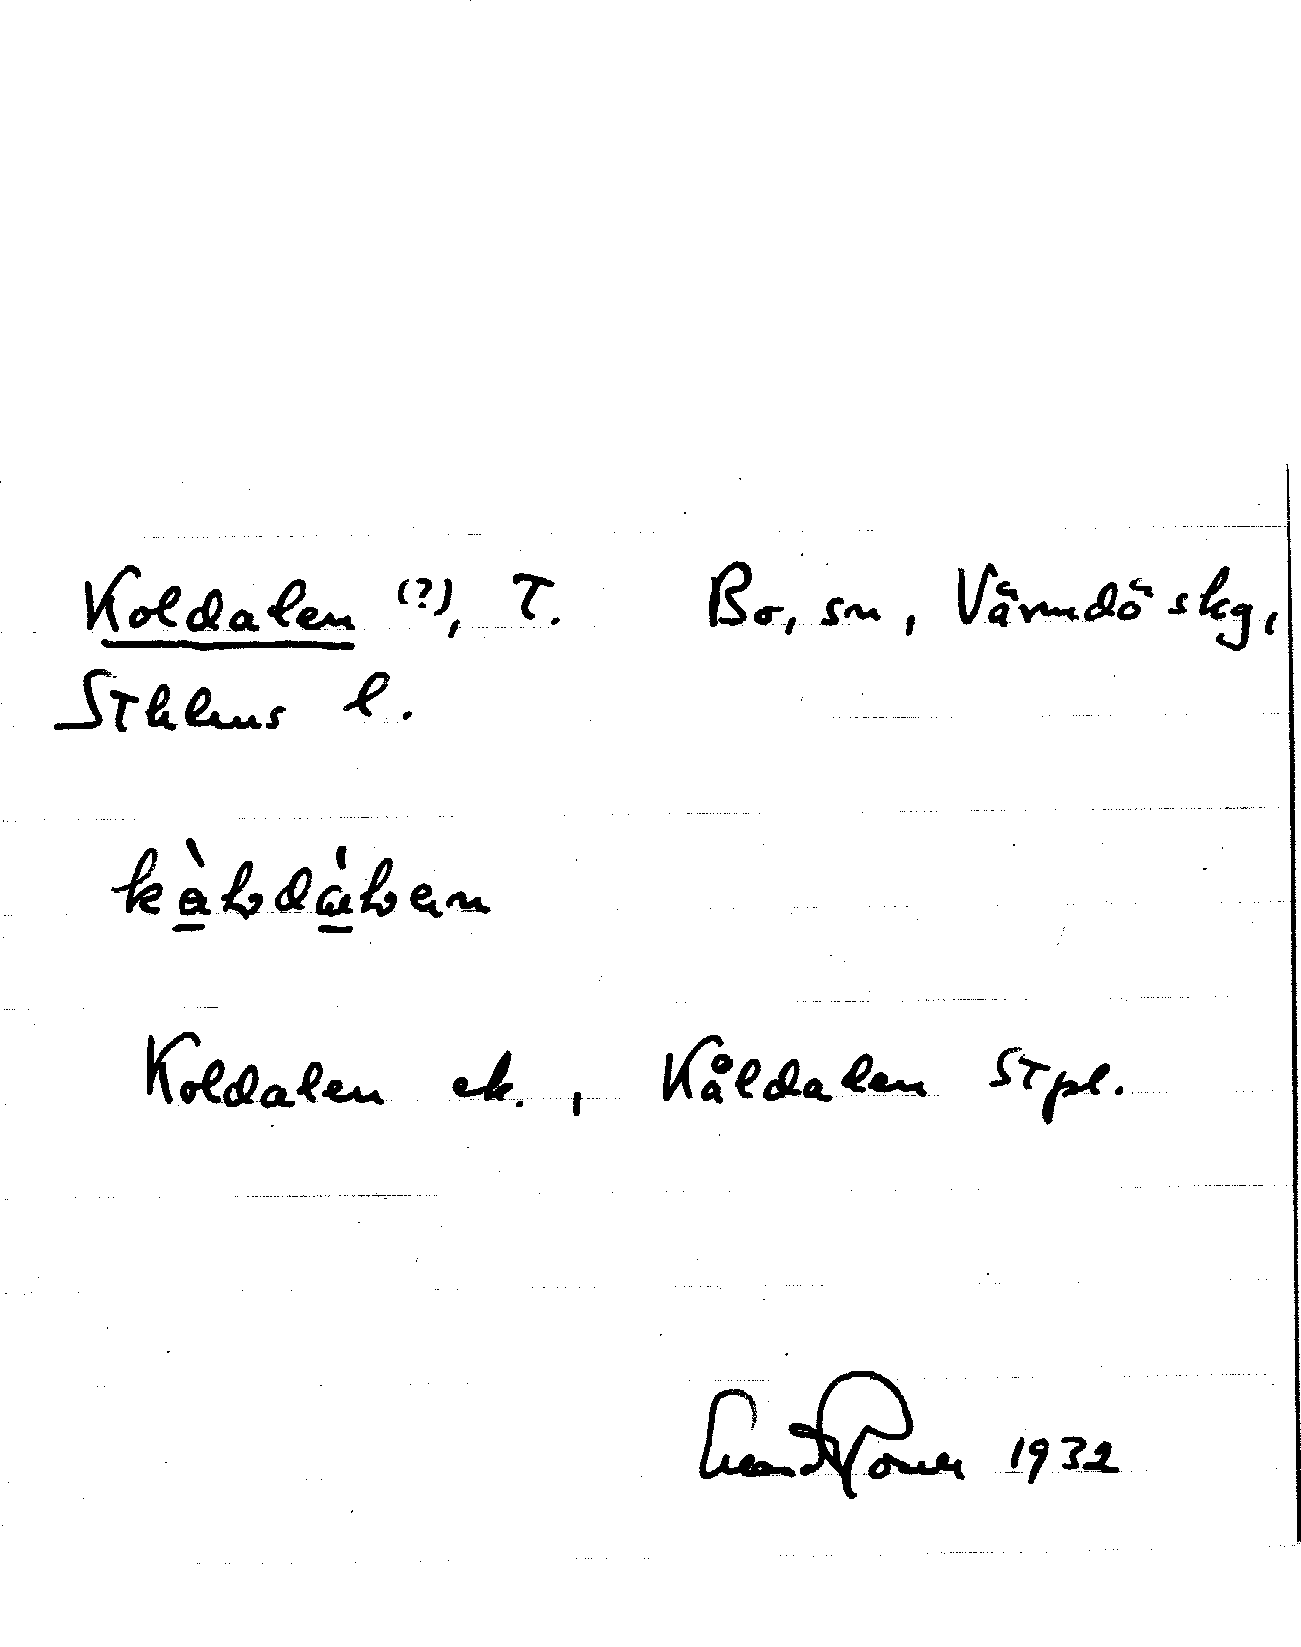 Koldalen (?), T. Bo, sn, Värmdö skg,
Sthlms l.
kàldálen
Koldalen ek., Kåldalen Stpl.
1932